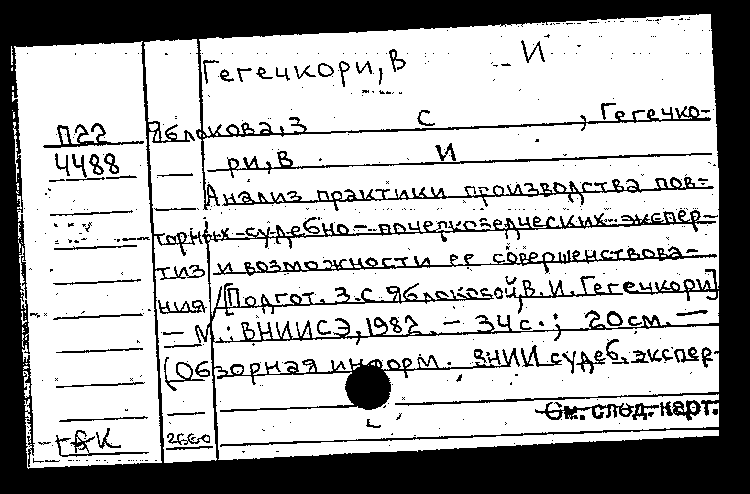 Гегечкори, В И
П22 Яблокова, З С , Гегечко-
4488 ри, В И
Анализ практики производства пов-
торных судебно-почерковедческих экспер-
тиз и возможности ее совершенствова-
ния /[Подгот. З.С. Яблоковой, В.И. Гегечкори]
– М.: ВНИИСЭ, 1982. – 34 с.; 20 см. –
(Обзорная информ. ВНИИ судеб. экспер-
См. след. карт.
2660